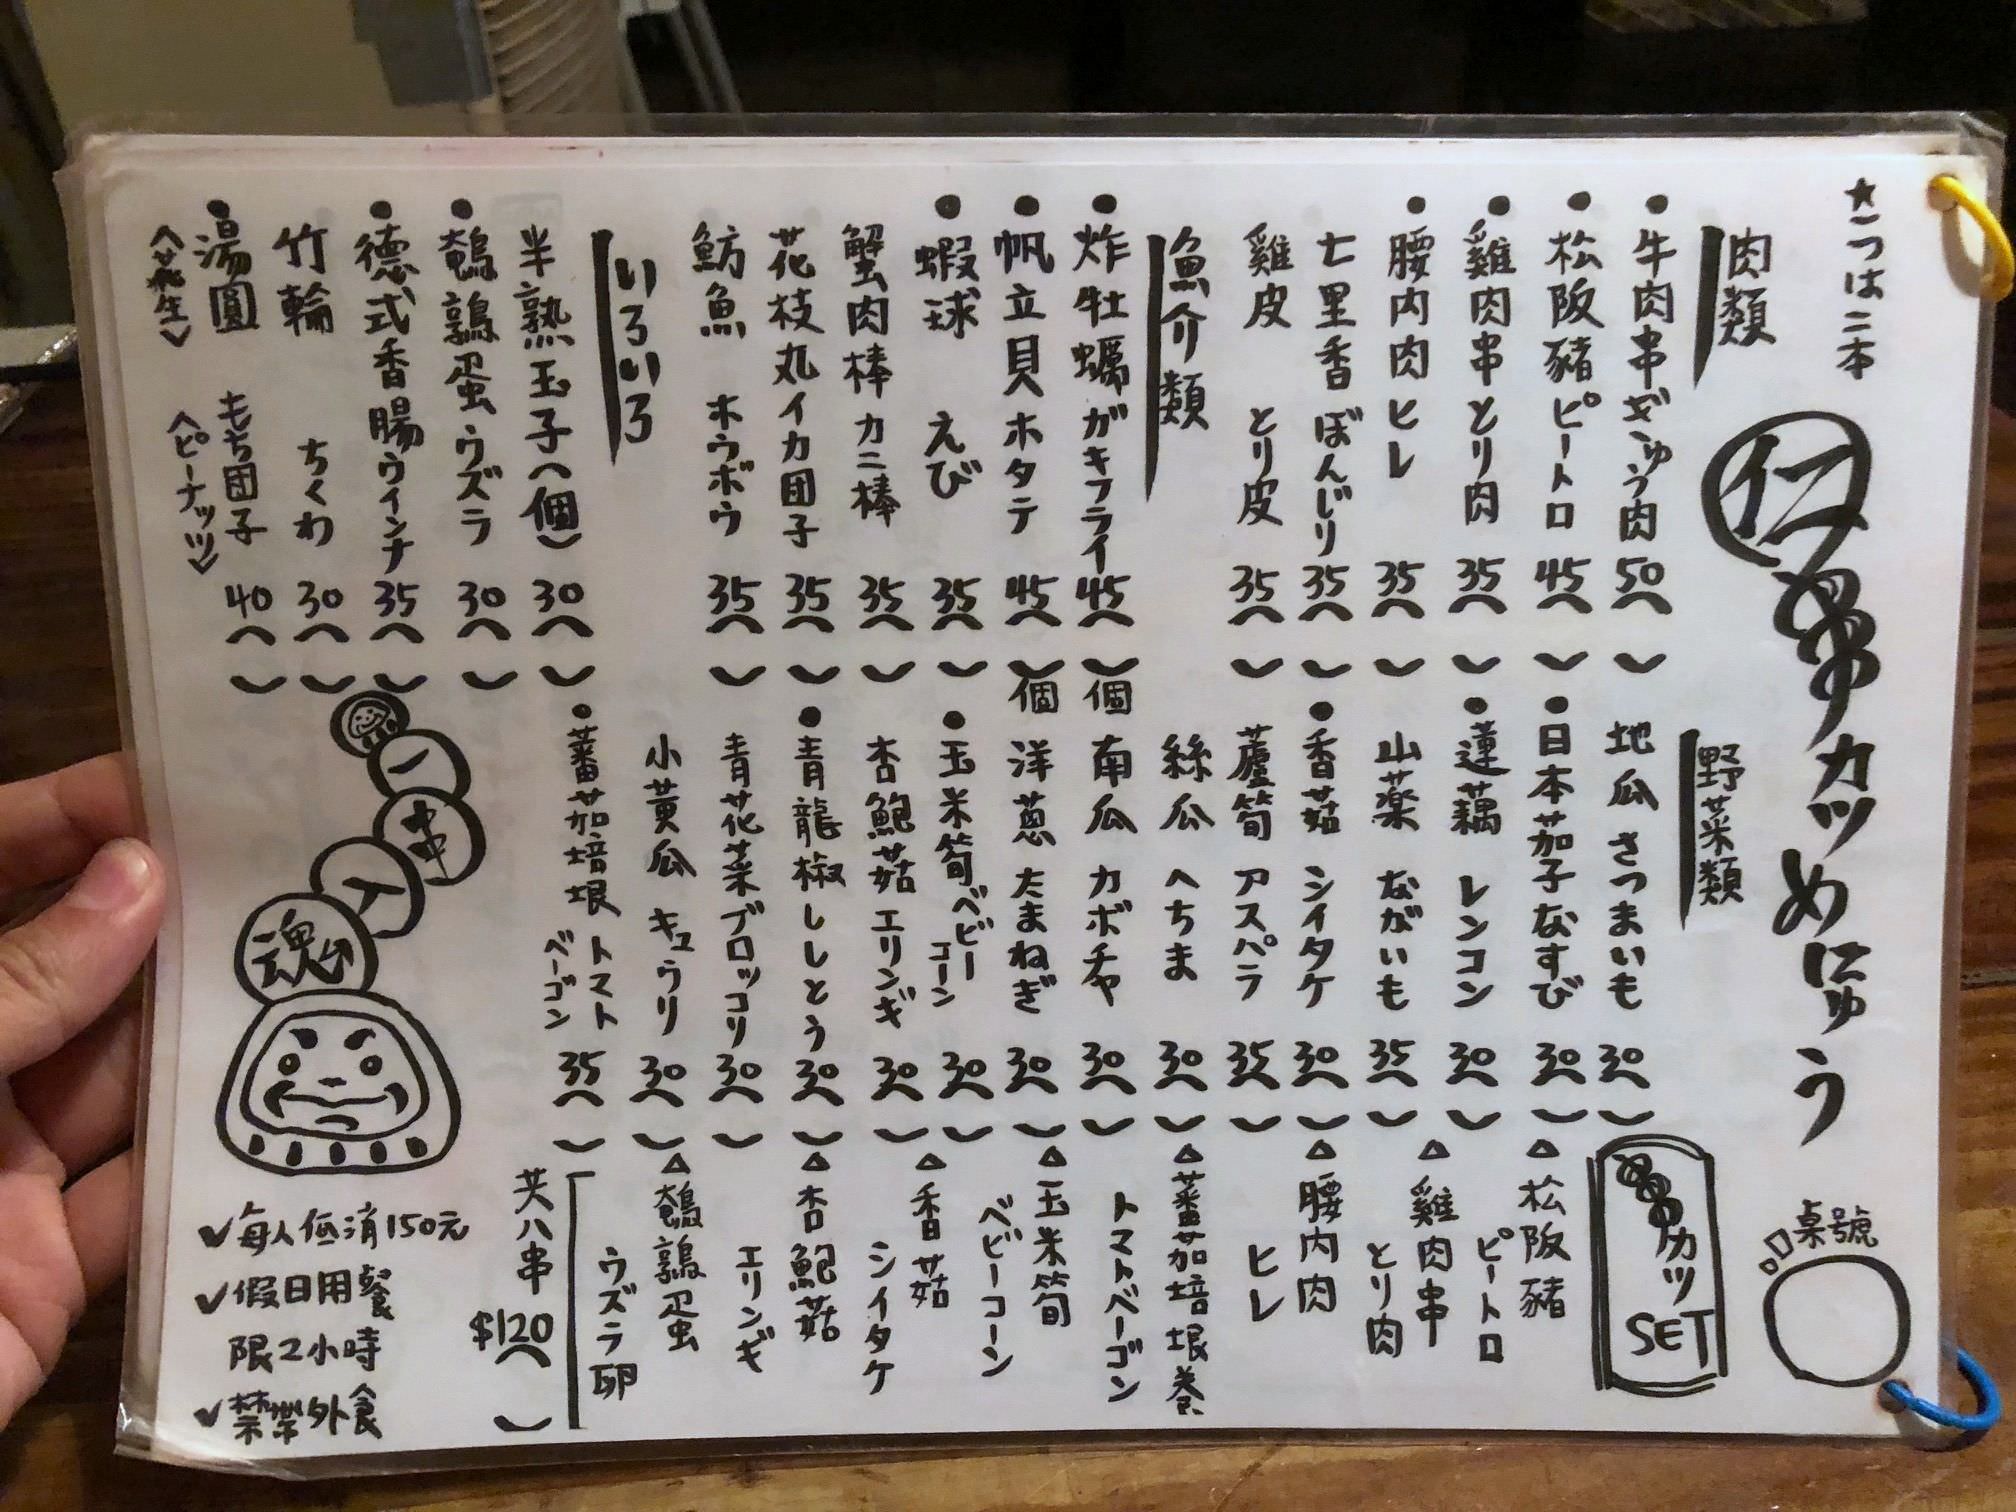 ★一つは二本
仁串カツめにゅう
桌號
肉類
●牛肉串 ぎゅう肉 50へ )
●松阪豬 ピートロ 45へ )
●雞肉串 とり肉 35へ )
●腰内肉 ヒレ 35へ )
七里香 ぼんじり 35へ )
雞皮 とり皮 35へ )
魚介類
●炸牡蠣 ガキフライ 45へ )個
●帆立貝 ホタテ 45へ )個
●蝦球 えび 35へ )
蟹肉棒 カニ棒 35へ )
花枝丸 イカ団子 35へ )
魴魚 ホウボウ 35へ )
いろいろ
半熟玉子(個) 30へ )
●鵪鶉蛋 ウズラ 30へ )
●德式香腸 ウインナ 35へ )
竹輪 ちくわ 30へ )
●湯圓 もち団子 40へ )
(花生) (ピーナッツ)
野菜類
地瓜 さつまいも 30へ )
●日本茄子 なすび 30へ )
●蓮藕 レンコン 30へ )
山薬 ながいも 35へ )
●香菇 シイタケ 30へ )
蘆筍 アスパラ 35へ )
絲瓜 へちま 30へ )
南瓜 カボチャ 30へ )
洋蔥 たまねぎ 30へ )
●玉米筍 ベビーコーン 30へ )
杏鮑菇 エリンギ 30へ )
●青龍椒 ししとう 30へ )
青花菜 ブロッコリ 30へ )
小黃瓜 キュウリ 30へ )
●蕃茄培根 トマトベーゴン 35へ )
串カツSET
△松阪豬 ピートロ
△雞肉串 とり肉
△腰内肉 ヒレ
△蕃茄培根卷 トマトベーゴン
△玉米筍 ベビーコーン
△香菇 シイタケ
△杏鮑菇 エリンギ
△鵪鶉蛋 ウズラ卵
共八串 $120へ )
一串入魂
✓每人低消150元
✓假日用餐
限2小時
✓禁帶外食